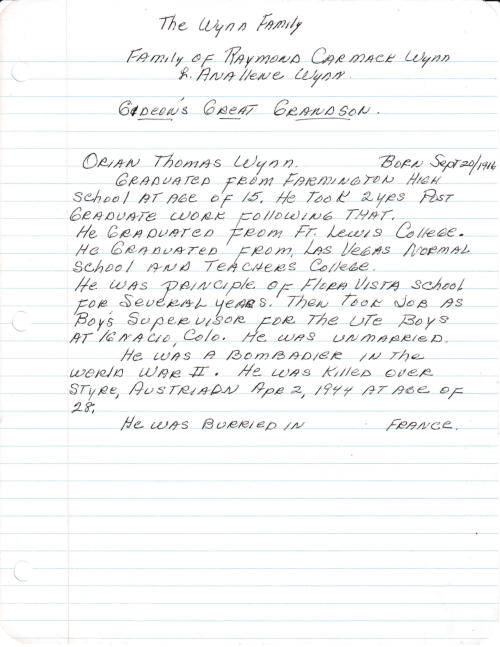 The Wynn Family
Family of Raymond Carmack Wynn
& Anallene Wynn.
Gideon's Great Grandson.
Orian Thomas Wynn. Born Sept 20/1916
Graduated from Farmington High
School at age of 15. He took 2 yrs Post
Graduate work following that.
He graduated from Ft. Lewis College.
He graduated from, Las Vegas Normal
School and Teachers College.
He was principle of Flora Vista School
for several years. Then took job as
Boy's Supervisor for the Ute Boys
at Ignacio, Colo. He was unmarried.
He was a bombadier in the
World War II. He was killed over
Styre, Austriadn Apr 2, 1944 at age of
28.
He was burried in France.